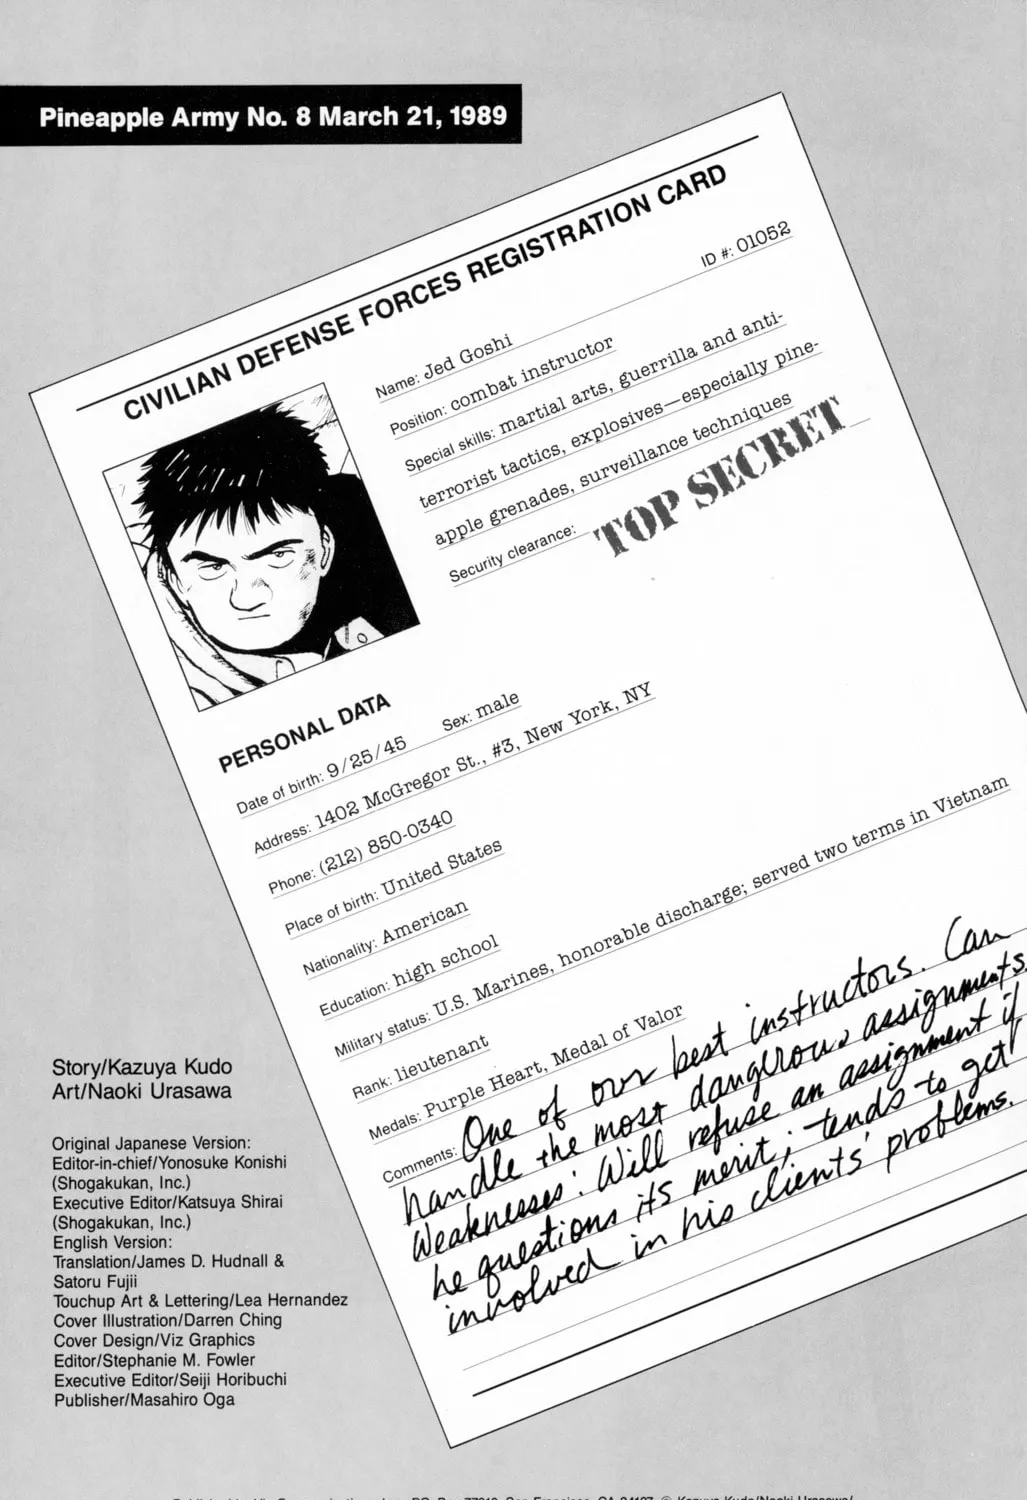 Pineapple Army No. 8 March 21, 1989
CIVILIAN DEFENSE FORCES REGISTRATION CARD
ID #: 01052
Name: Jed Goshi
Position: combat instructor
Special skills: martial arts, guerrilla and anti-
terrorist tactics, explosives—especially pine-
apple grenades, surveillance techniques
Security clearance: TOP SECRET
PERSONAL DATA
Date of birth: 9/25/45 Sex: male
Address: 1402 McGregor St., #3, New York, NY
Phone: (212) 850-0340
Place of birth: United States
Nationality: American
Education: high school
Military status: U.S. Marines, honorable discharge; served two terms in Vietnam
Rank: lieutenant
Medals: Purple Heart, Medal of Valor
Comments: One of our best instructors. Can
handle the most dangerous assignments.
Weaknesses: Will refuse an assignment if
he questions its merit; tends to get
involved in his clients' problems.
Story/Kazuya Kudo
Art/Naoki Urasawa
Original Japanese Version:
Editor-in-chief/Yonosuke Konishi
(Shogakukan, Inc.)
Executive Editor/Katsuya Shirai
(Shogakukan, Inc.)
English Version:
Translation/James D. Hudnall &
Satoru Fujii
Touchup Art & Lettering/Lea Hernandez
Cover Illustration/Darren Ching
Cover Design/Viz Graphics
Editor/Stephanie M. Fowler
Executive Editor/Seiji Horibuchi
Publisher/Masahiro Oga